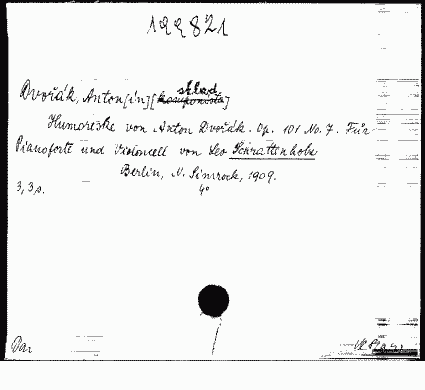 199821
sklad.
Dvořák, Anton[ín] [komponista]
Humoreske von Anton Dvořák. Op. 101 No. 7. Für
Pianoforte und Violoncell von Leo Schrattenholz
Berlin, N. Simrock, 1909.
3, 3 s. 4°
Dar